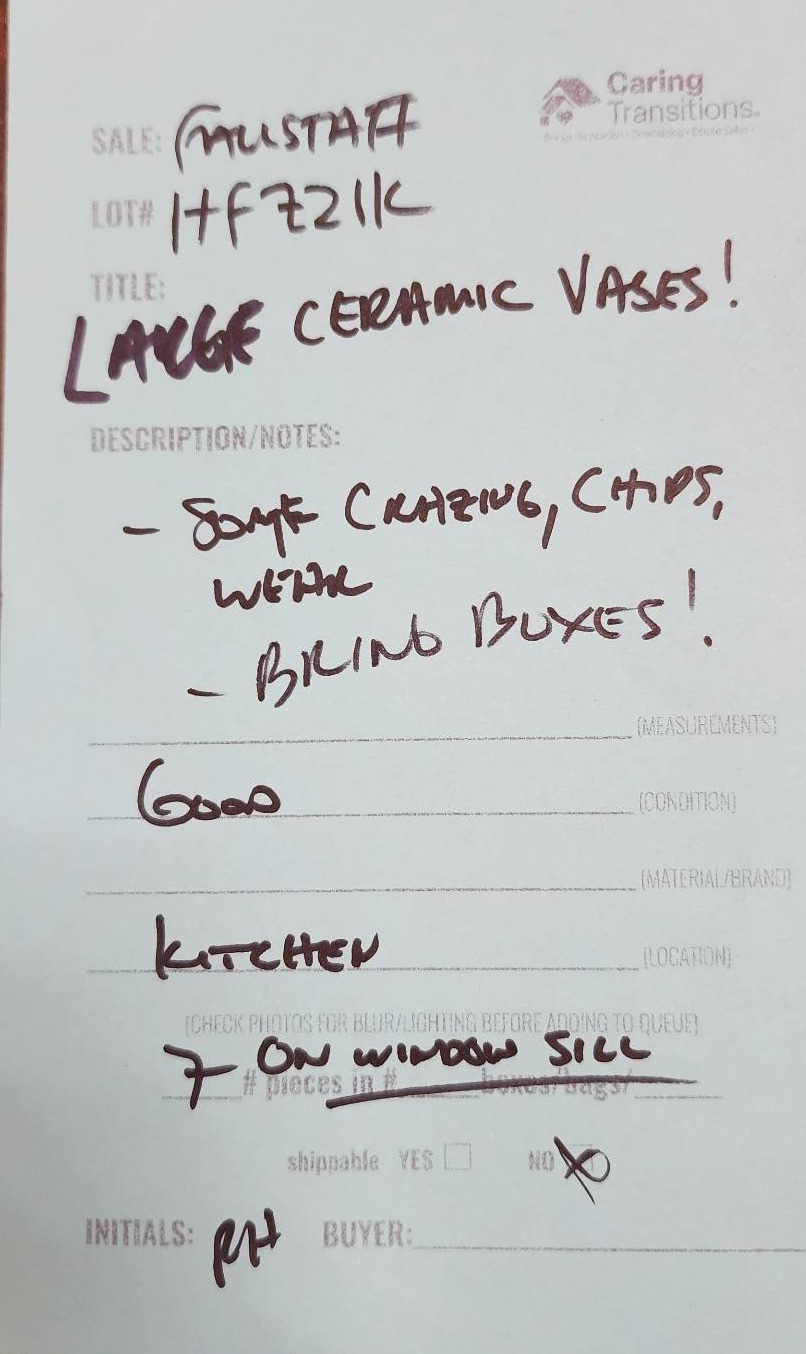 Caring
Transitions.
SALE: FALLSTAFF
LOT# HFZ21K
TITLE:
LARGE CERAMIC VASES!
DESCRIPTION/NOTES:
- SOME CRAZING, CHIPS,
WEAR
- BRING BOXES!
(MEASUREMENTS)
GOOD (CONDITION)
(MATERIAL/BRAND)
KITCHEN (LOCATION)
(CHECK PHOTOS FOR BLUR/LIGHTING BEFORE ADDING TO QUEUE)
7 ON WINDOW SILL
# pieces in # boxes/bags/
shippable YES NO X
INITIALS: RH BUYER: